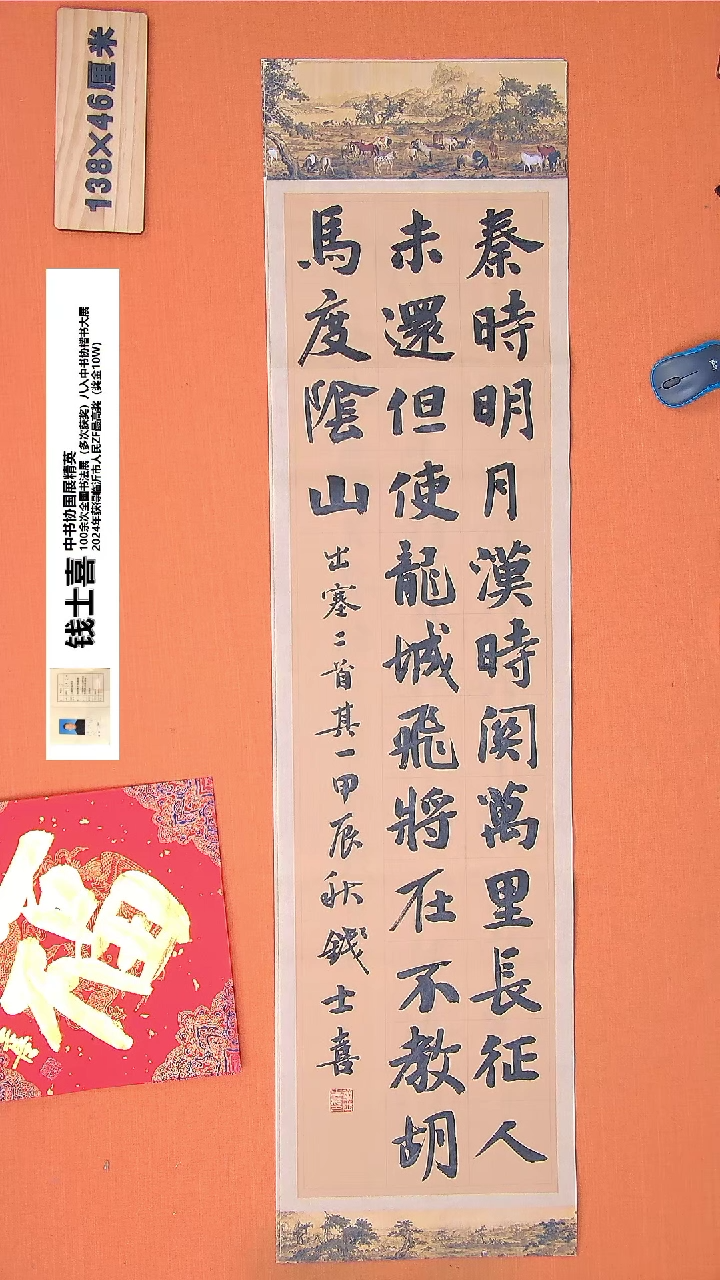 秦時明月漢時關萬里長征人
未還但使龍城飛將在不教胡
馬度陰山
出塞二首其一甲辰秋錢士喜
138×46厘米
钱士喜
中书协国展精英
100余次全国书法展（多次获奖）八入中书协楷书大展
2024年获得临沂市人民ZF最高奖（奖金10W）
福